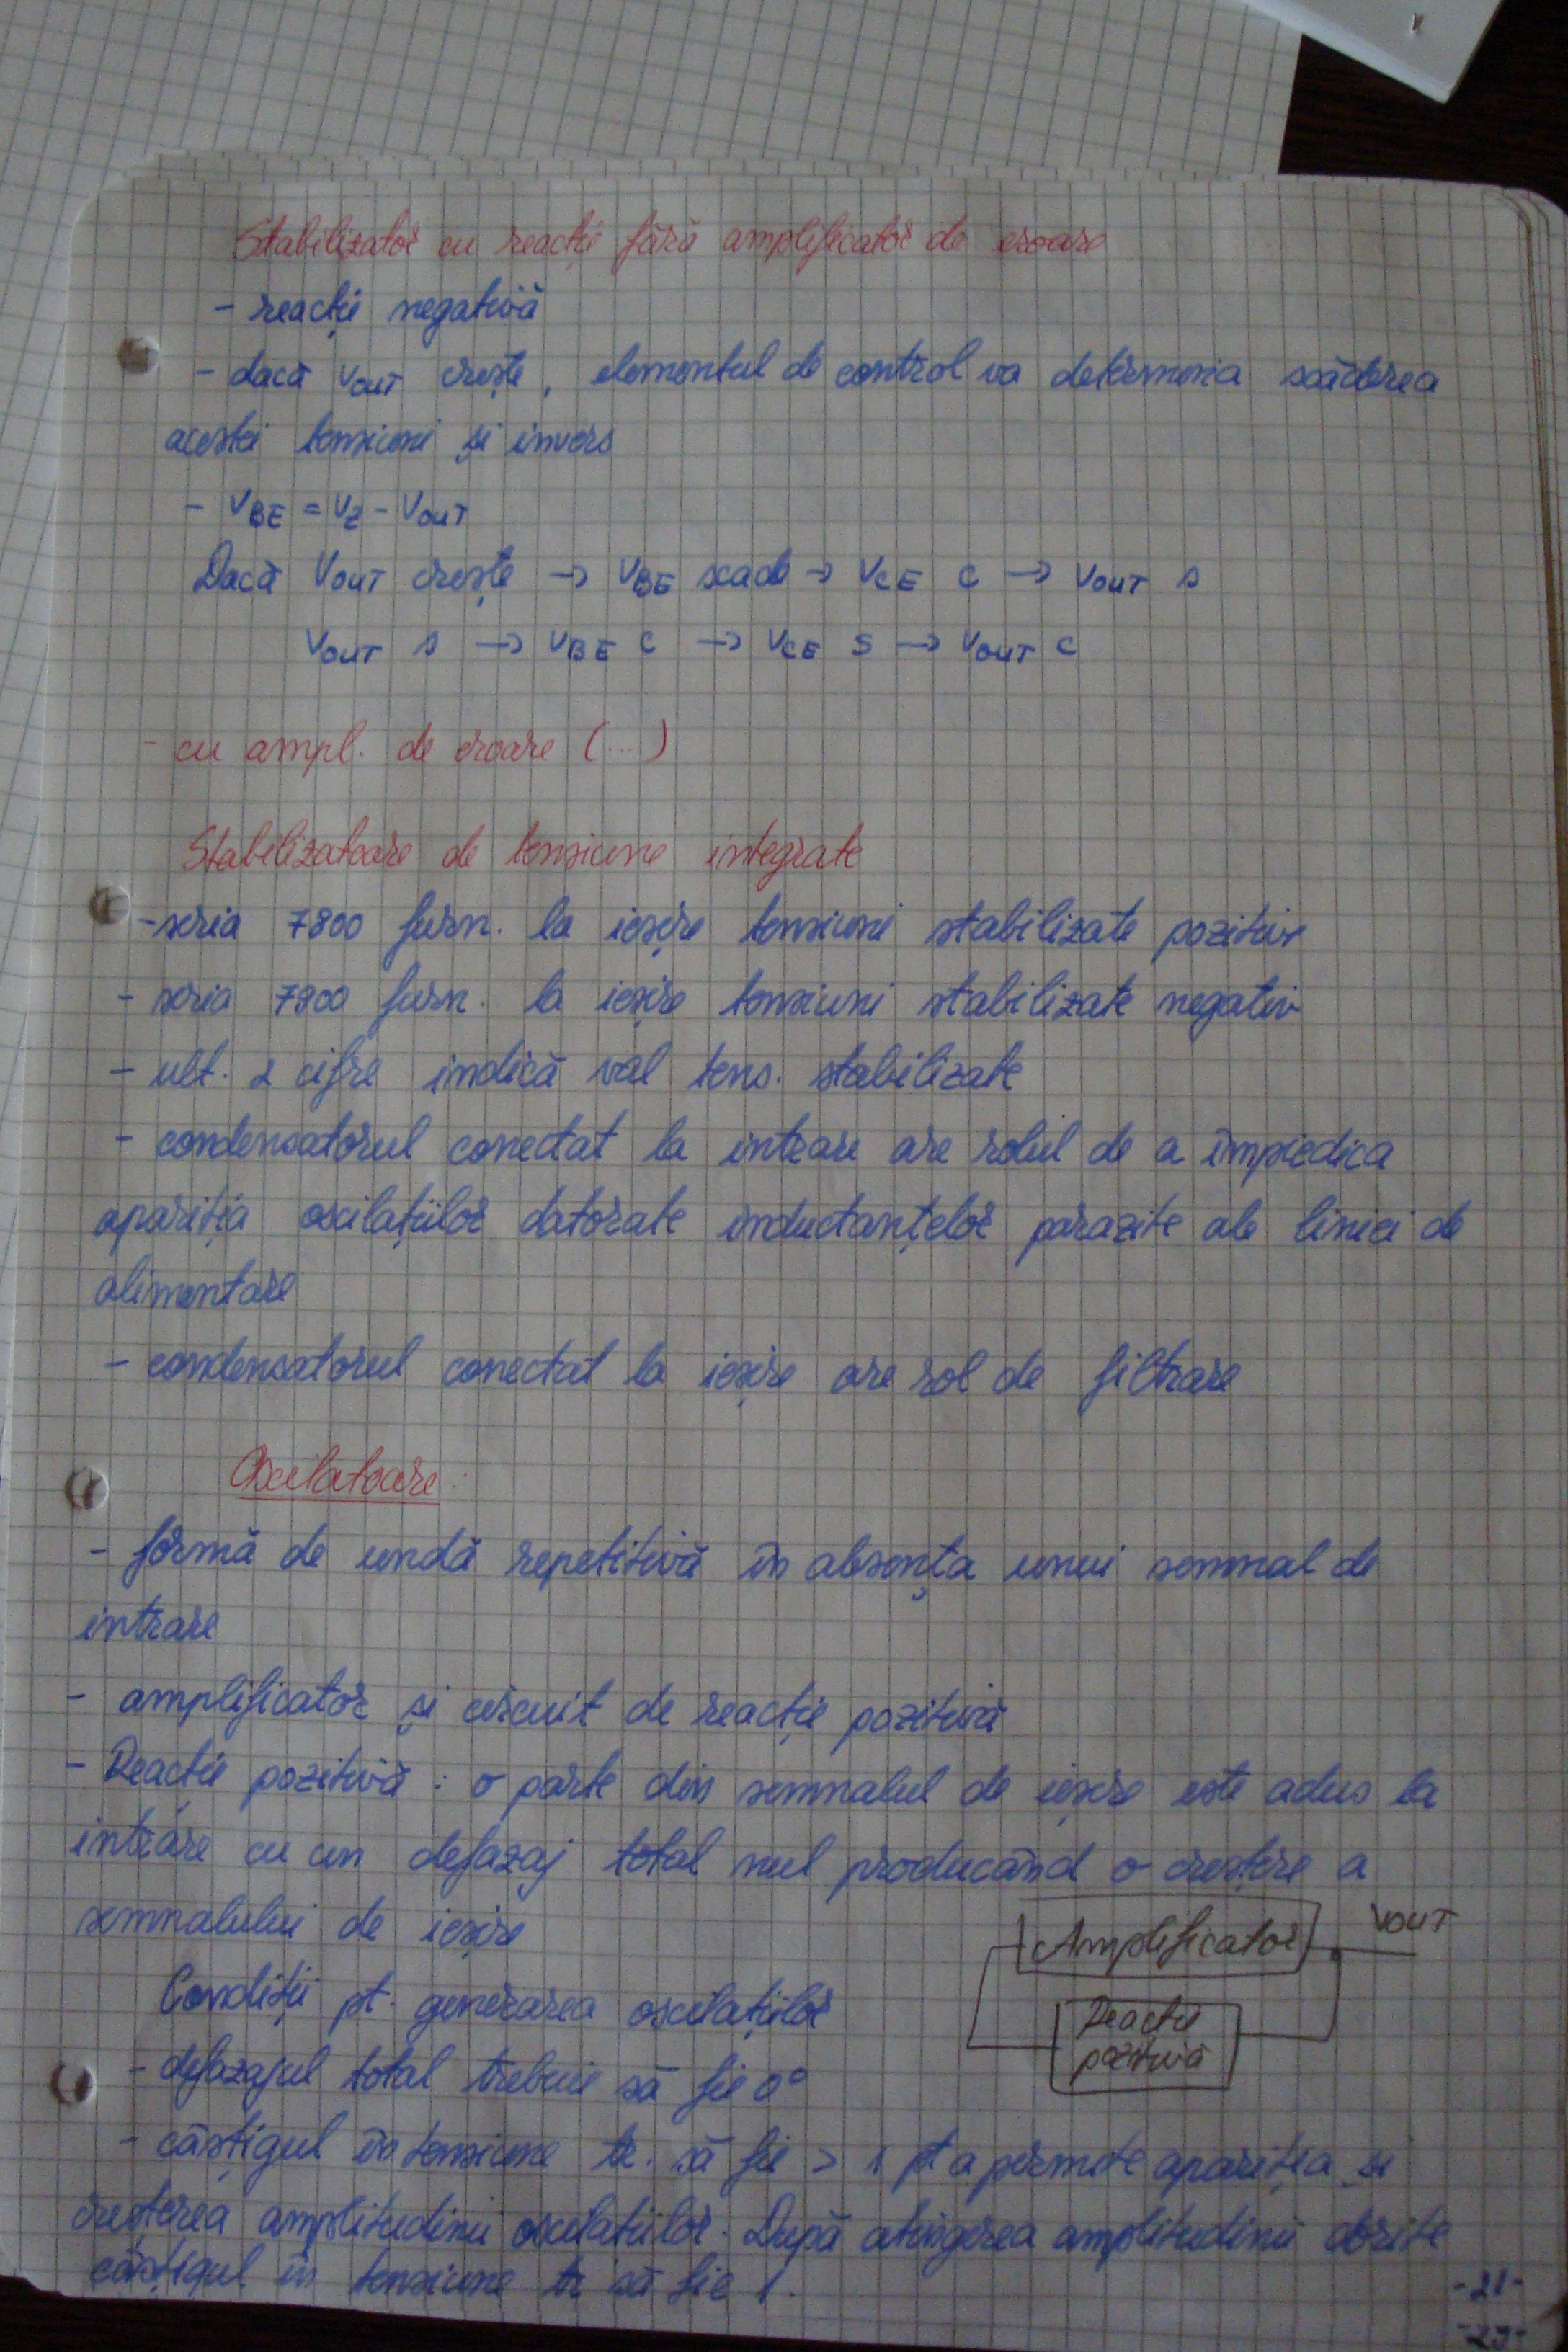 Stabilizator cu reacție fără amplificator de eroare
- reacție negativă
- dacă VOUT crește, elementul de control va determina scăderea
acestei tensiuni și invers
- VBE = VZ - VOUT
Dacă VOUT crește → VBE scade → VCE C → VOUT s
VOUT s → VBE C → VCE S → VOUT C
- cu ampl. de eroare (...)
Stabilizatoare de tensiune integrate
- seria 7800 furn. la ieșire tensiuni stabilizate pozitiv
- seria 7900 furn. la ieșire tensiuni stabilizate negativ
- ult. 2 cifre indică val tens. stabilizate
- condensatorul conectat la intrare are rolul de a împiedica
apariția oscilațiilor datorate inductanțelor parazite ale liniei de
alimentare
- condensatorul conectat la ieșire are rol de filtrare
Oscilatoare
- formă de undă repetitivă în absența unui semnal de
intrare
- amplificator și circuit de reacție pozitivă
- Reacție pozitivă: o parte din semnalul de ieșire este adus la
intrare cu un defazaj total nul producând o creștere a
semnalului de ieșire
Amplificator VOUT
Reacție
pozitivă
Condiții pt. generarea oscilațiilor
- defazajul total trebuie să fie 0°
- câștigul în tensiune tr. să fie > 1 pt a permite apariția și
creșterea amplitudinii oscilațiilor. După atingerea amplitudinii dorite
câștigul în tensiune tr să fie 1.
-21-